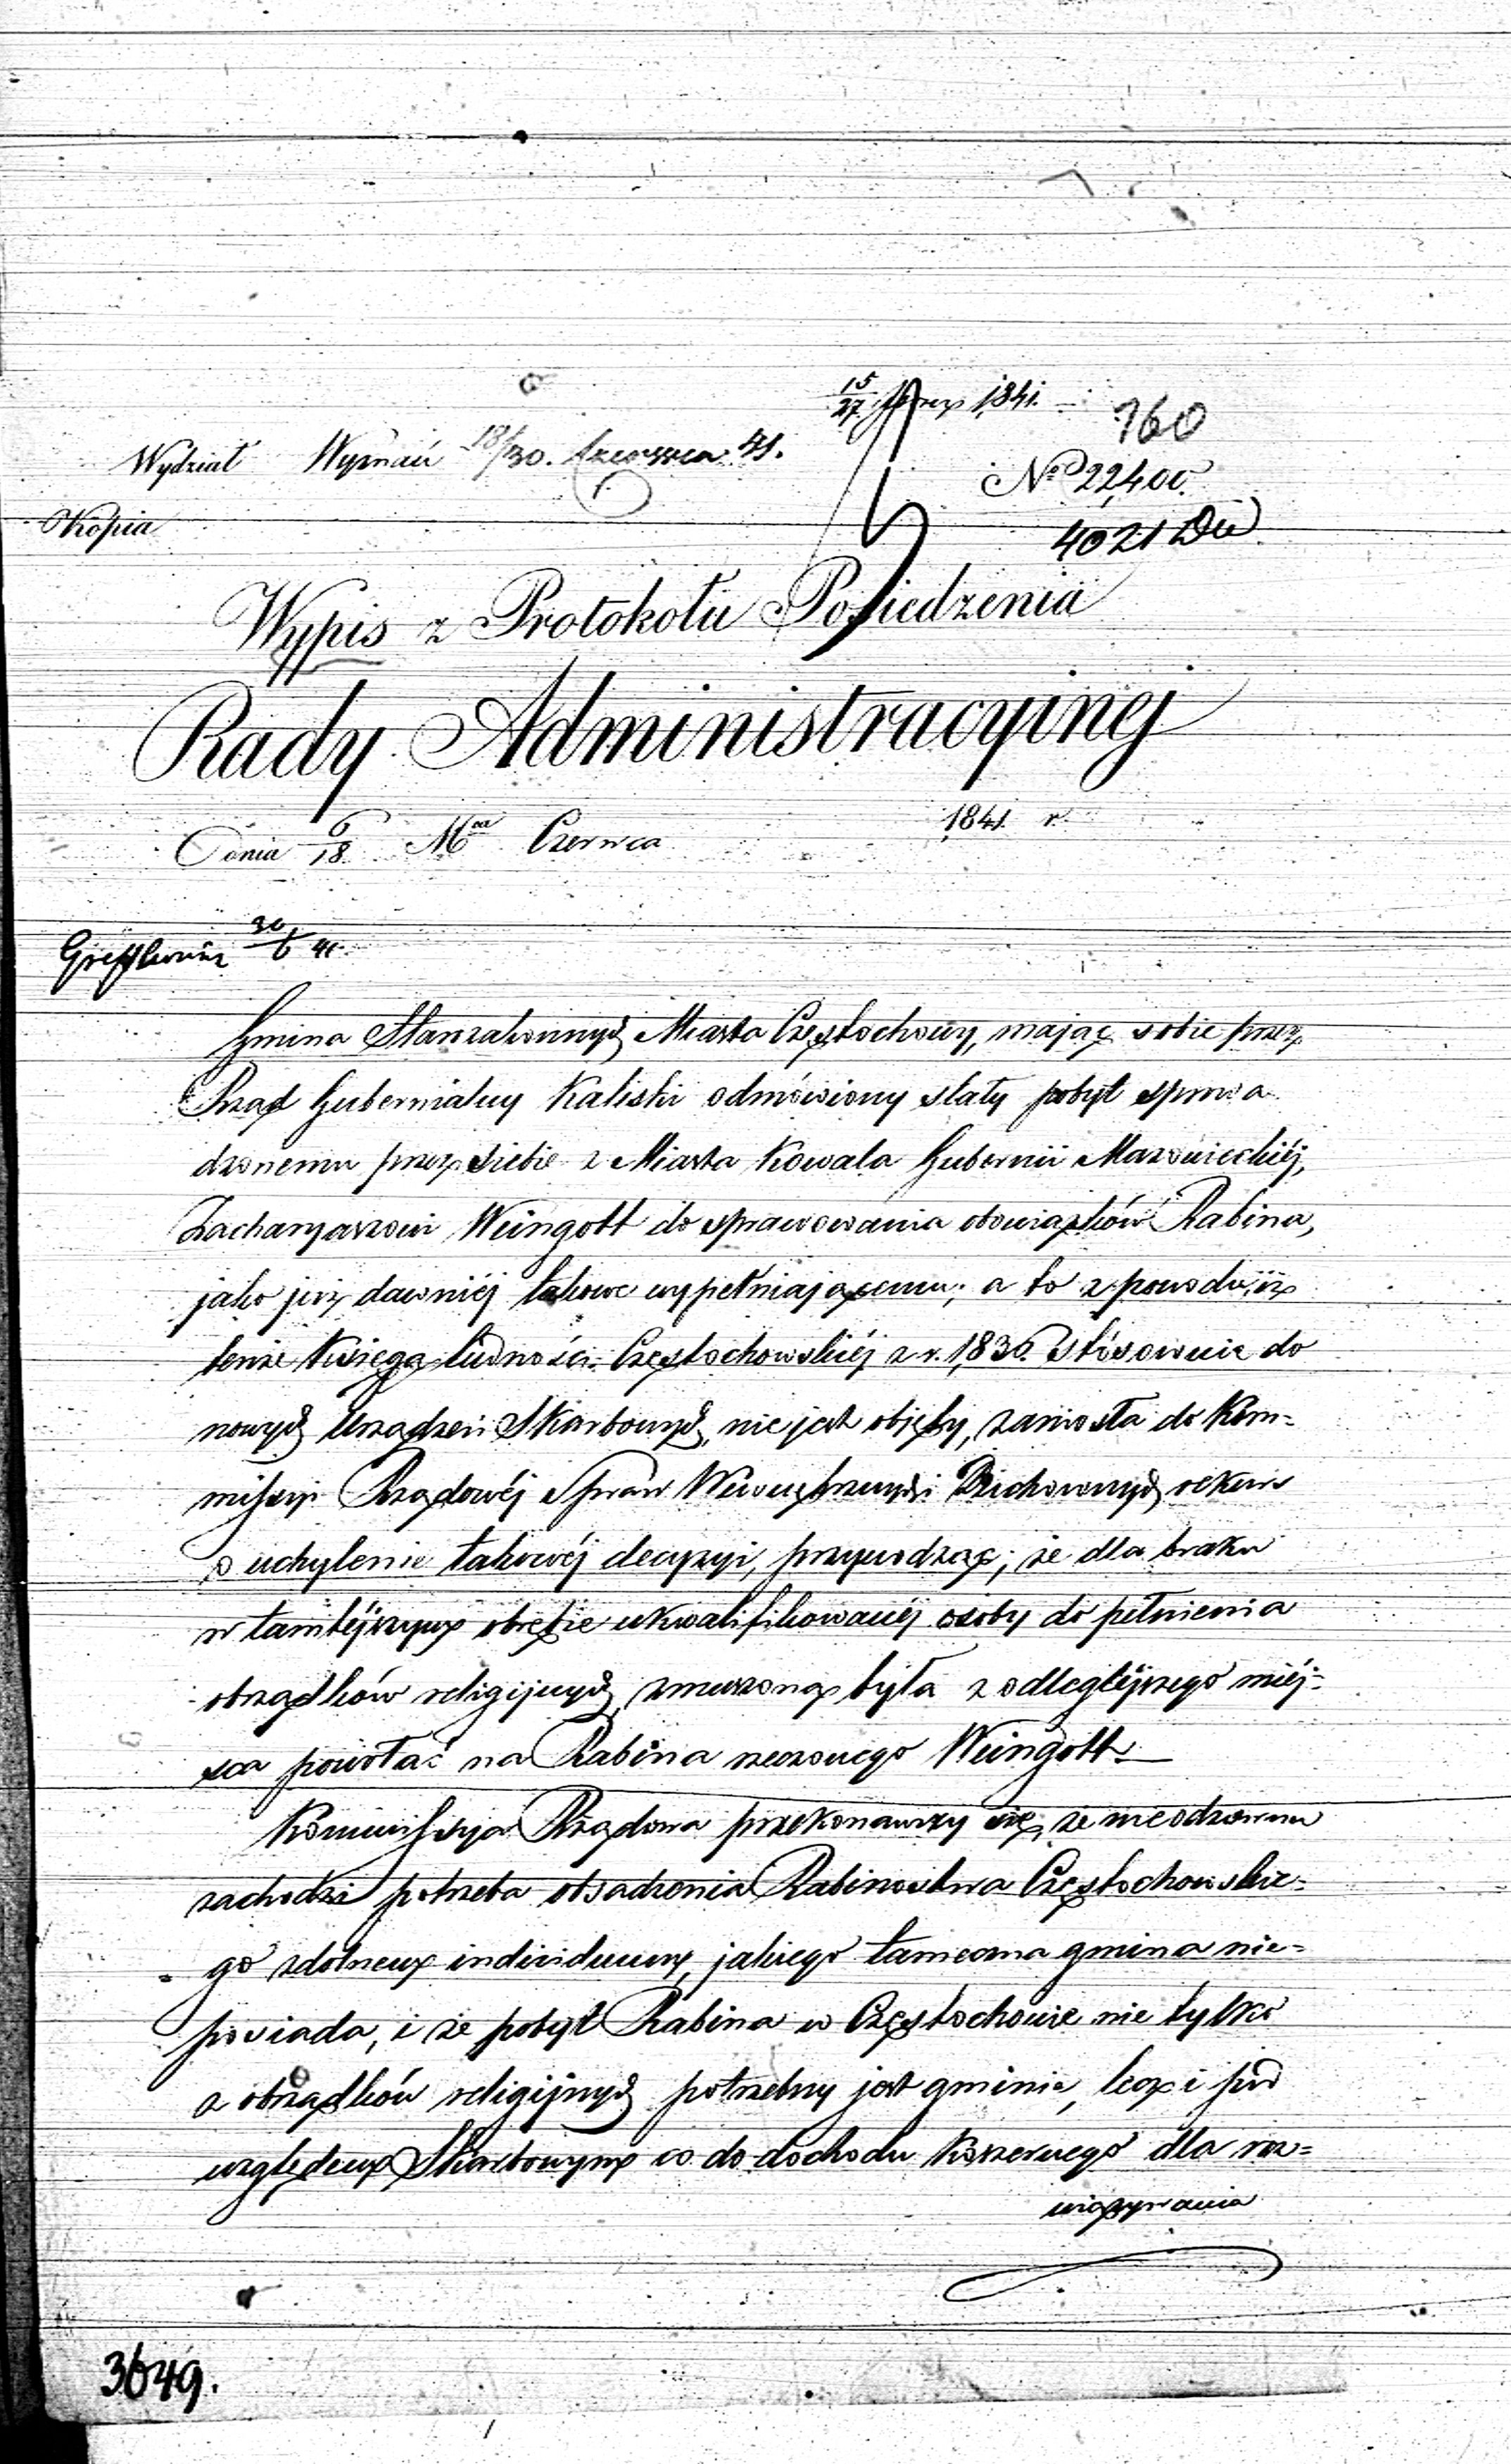 15/27 1841.
760
Wydział Wyznań 18/30. Czerwca 41.
No 22,400.
Kopia
4021
Wypis z Protokołu Posiedzenia
Rady Administracyinej
Dnia 6/18 Mca Czerwca 1841 r.
30/6 41.
Gmina Starozakonnych Miasta Częstochowy, mając sobie przez
Rząd Gubernialny Kaliski odmówiony stały pobyt sprowa
dzonemu przez siebie z Miasta Kowala Gubernii Mazowieckiéj,
Zacharyaszowi Weingott do sprawowania obowiązków Rabina,
jako już dawniéj takowe wypełniającemu; a to z powodu, iż
tenże Księgą ludności Częstochowskiéj z r. 1830. stósownie do
nowych Urządzeń Skarbowych, nie jest objęty, zaniosła do Kom=
missyi Rządowéj Spraw Wewnętrznych i Duchownych rekurs
o uchylenie takowéj decyzyi, przywodząc, że dla braku
w tamtéjszym obrębie ukwalifikowanéj osoby do pełnienia
obrządków religijnych zmuszoną była z odległéjszego miéj=
sca powołać na Rabina rzeczonego Weingott.
Kommissya Rządowa przekonawszy się, że nieodzowna
zachodzi potrzeba obsadzenia Rabinostwa Częstochowskie=
= go zdolnem individuum, jakiego tameczna gmina nie=
posiada, i że pobyt Rabina w Częstochowie nie tylko
z obrządków religijnych potrzebny jest gminie, lecz i pod
względem Skarbowym co do dochodu Koszernego dla roz=
wiązywania
3649.